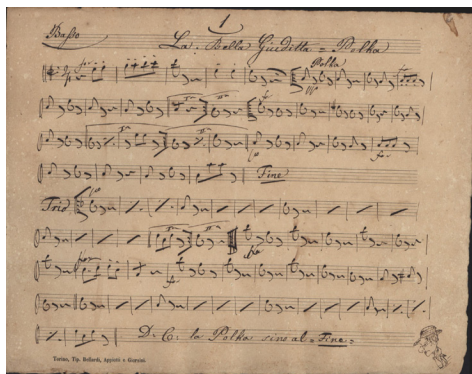 1
Basso
La Bella Giuditta = Polka
Polka
Fine
Trio
D. C. la Polka sino al = Fine =
Torino, Tip. Bellardi, Appiotti e Giorsini